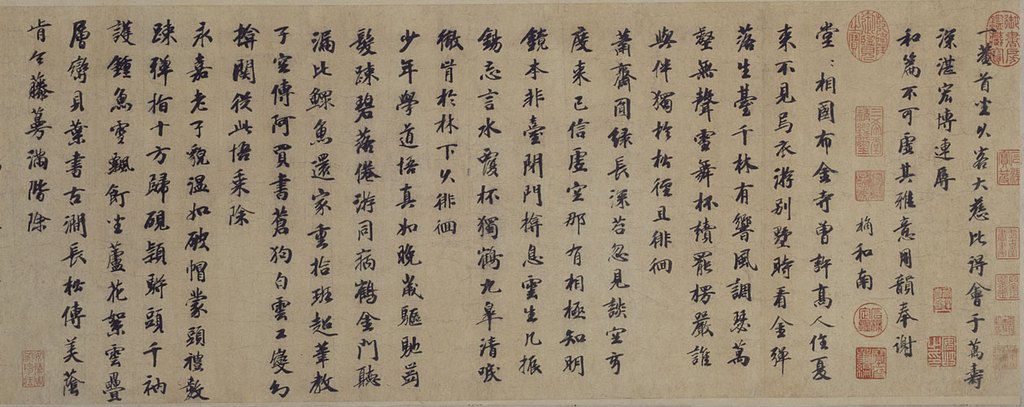 一菴首坐以峇大慈比得會于萬壽
深湛宏博連辱
和篇不可虛其雅意用韻奉謝
和南
堂〻相國布金寺曾許高人住夏
來不見烏衣游別墅時看金彈
落生臺千林有響風調瑟萬
壑無聲雪舞杯積罷楞嚴誰
與伴獨於松徑且徘徊
蕭齋閴綠長深苔忽見談空可
度來已信虛空那有相極知明
鏡本非臺閉門揜息雲生几振
錫忘言水覆杯獨鶴九皋清唳
徹肯於林下久徘徊
少年學道悟真如晚歲驅馳
髮疎碧落倦游同病鶴金門聽
漏比鰥魚還家重拾班超筆教
子空傳阿買書蒼狗白雲工變幻
揜關從此悟乘除
永嘉老子貌溫如破帽蒙頭禮數
疎彈指十方歸硯穎駢頭千衲
護鍾魚雪飄飣坐蘆花絮雲疊
層齋貝葉書古澗長松傳美蔭
肯令藤蔓滿階除